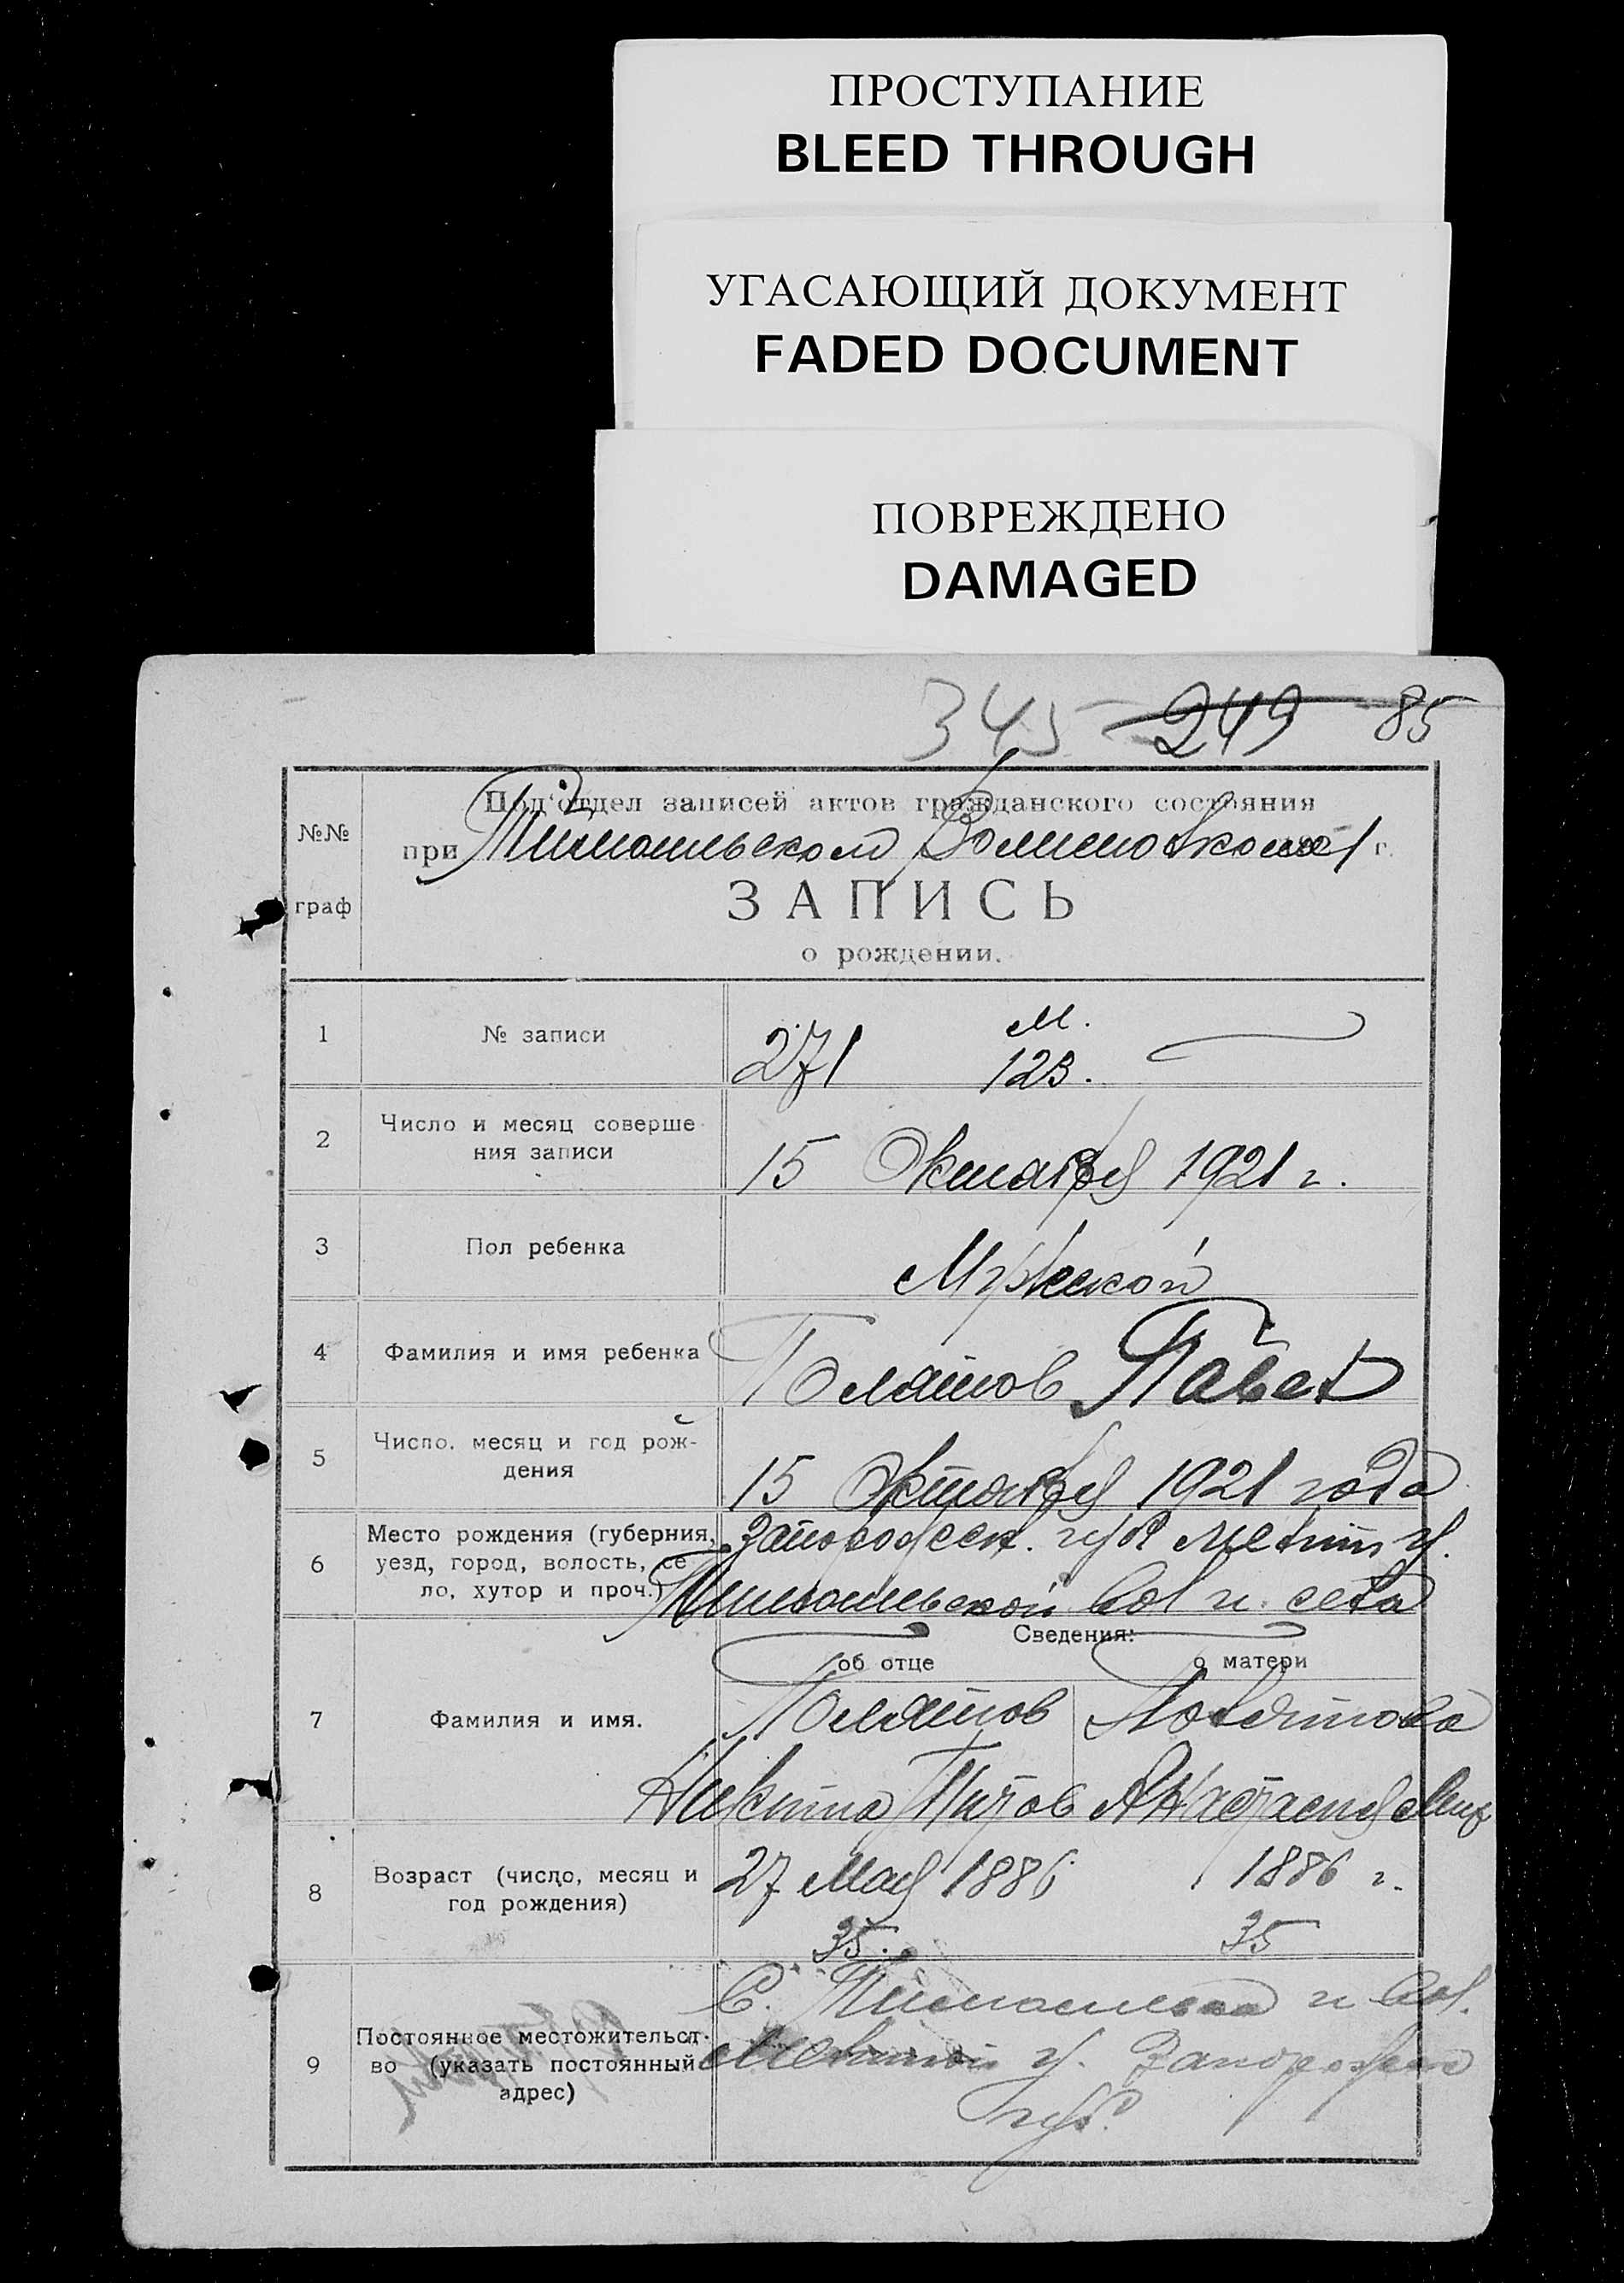 ПРОСТУПАНИЕ
BLEED THROUGH
УГАСАЮЩИЙ ДОКУМЕНТ
FADED DOCUMENT
ПОВРЕЖДЕНО
DAMAGED
345 249 85
№№ граф
Под'отдел записей актов гражданского состояния
при Тимошевском Волисполкоме 1 г.
ЗАПИСЬ
о рождении.
1 № записи 271 М. 123.
2 Число и месяц соверше-
ния записи 15 Октября 1921 г.
3 Пол ребенка Мужской
4 Фамилия и имя ребенка Полятов Павел
5 Число, месяц и год рож-
дения 15 Октября 1921 года
6 Место рождения (губерния, Запорожск. губ Мелит у.
уезд, город, волость, се
ло, хутор и проч.) Тимошевской вол и села
Сведения:
об отце о матери
7 Фамилия и имя. Полятов Полятова
Никита Титов Анастасия
8 Возраст (число, месяц и 27 Мая 1886 1886 г.
год рождения) 35. 35
9 С. Тимошевка и вол.
Постоянное местожительст-
во (указать постоянный у. Запорожск
адрес) губ.